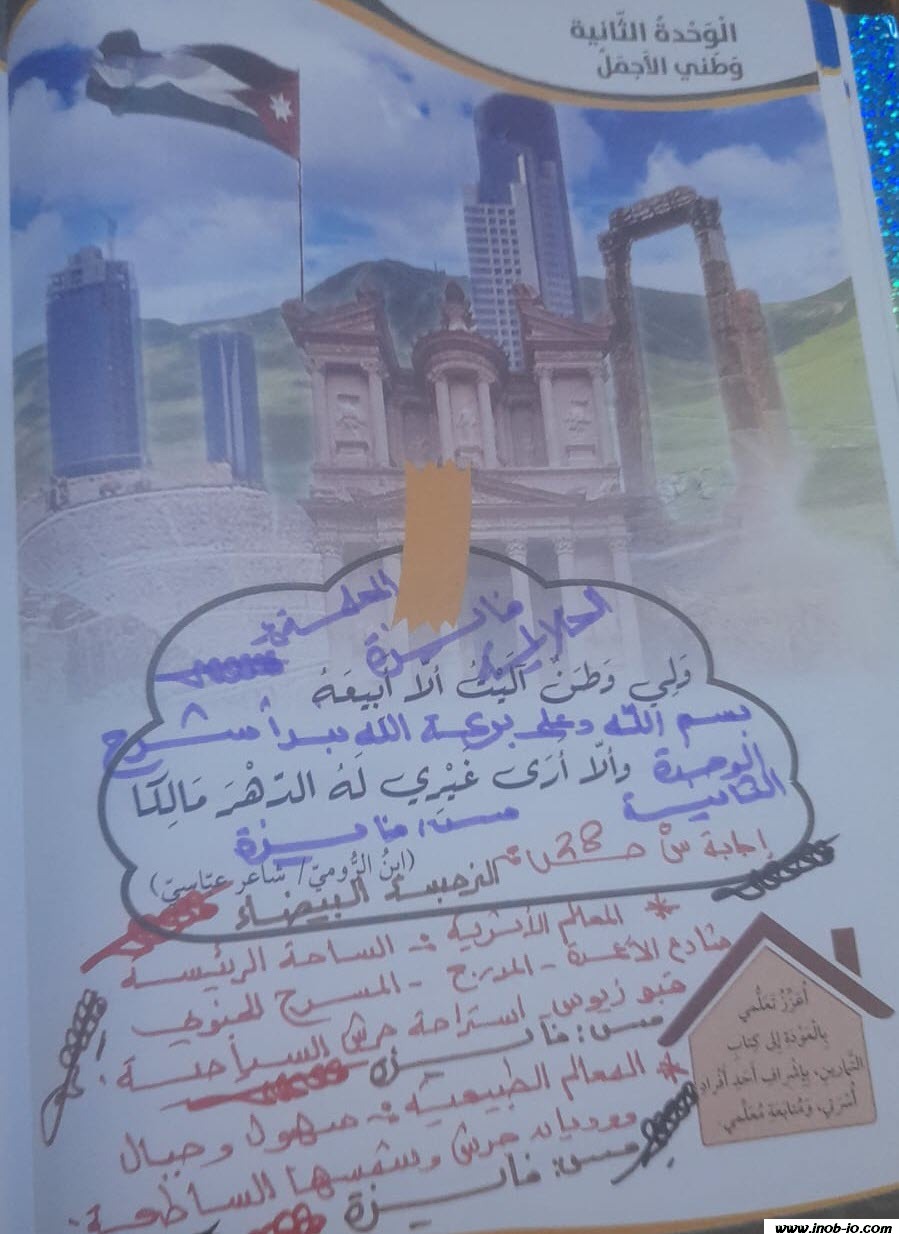 الْوَحْدَةُ الثَّانِيَة
وَطَني الأَجمَلُ
المعلمة
فايزة
وَلِي وَطَنٌ آلَيْتُ أَلّا أَبيعَهُ
بسم الله وعلى بركة الله نبدأ شرح
الوحدة
وأَلّا أَرَى غَيْرِي لَهُ الدّهْرَ مَالِكَا
الثانية
مس: فايزة
(ابنُ الرُّوميّ/ شاعر عبّاسيّ)
إجابة س ص 28
النرجسة البيضاء
* المعالم الأثرية: الساحة الرئيسة
شارع الأعمدة - المدرج - المسرح الجنوبي
قبو زيوس - استراحة جرش السياحية.
مس: فايزة
* المعالم الطبيعية: سهول وجبال
ووديان جرش وشمسها الساطعة.
مس: فايزة
أُعَزِّزُ تَعَلُّمي
بِالْعَوْدَةِ إِلى كِتابِ
التَّمارين، بِإِشْرافِ أَحَدِ أَفْرادِ
أُسْرَتي، وَمُتابَعَةِ مُعَلِّمي.
www.jnob-jo.com